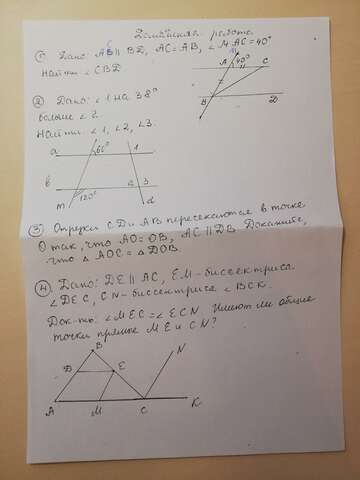 Домашняя работа.
① Дано: АC ∥ BD, AC = AB, ∠ MAC = 40°
Найти ∠ CBD.
M
A 40° C
B D
② Дано: ∠ 1 на 38°
больше ∠ 2.
Найти: ∠ 1, ∠ 2, ∠ 3.
a 60° 1
b 120° 2 3
m d
③ Отрезки CD и AB пересекаются в точке
O так, что AO = OB, AC ∥ DB. Докажите,
что △ AOC = △ DOB.
④ Дано: DE ∥ AC, EM - биссектриса
∠ DEC, CN - биссектриса ∠ BCK.
Док-ть: ∠ MEC = ∠ ECN. Имеют ли общие
точки прямые ME и CN?
B N
D E
A M C K